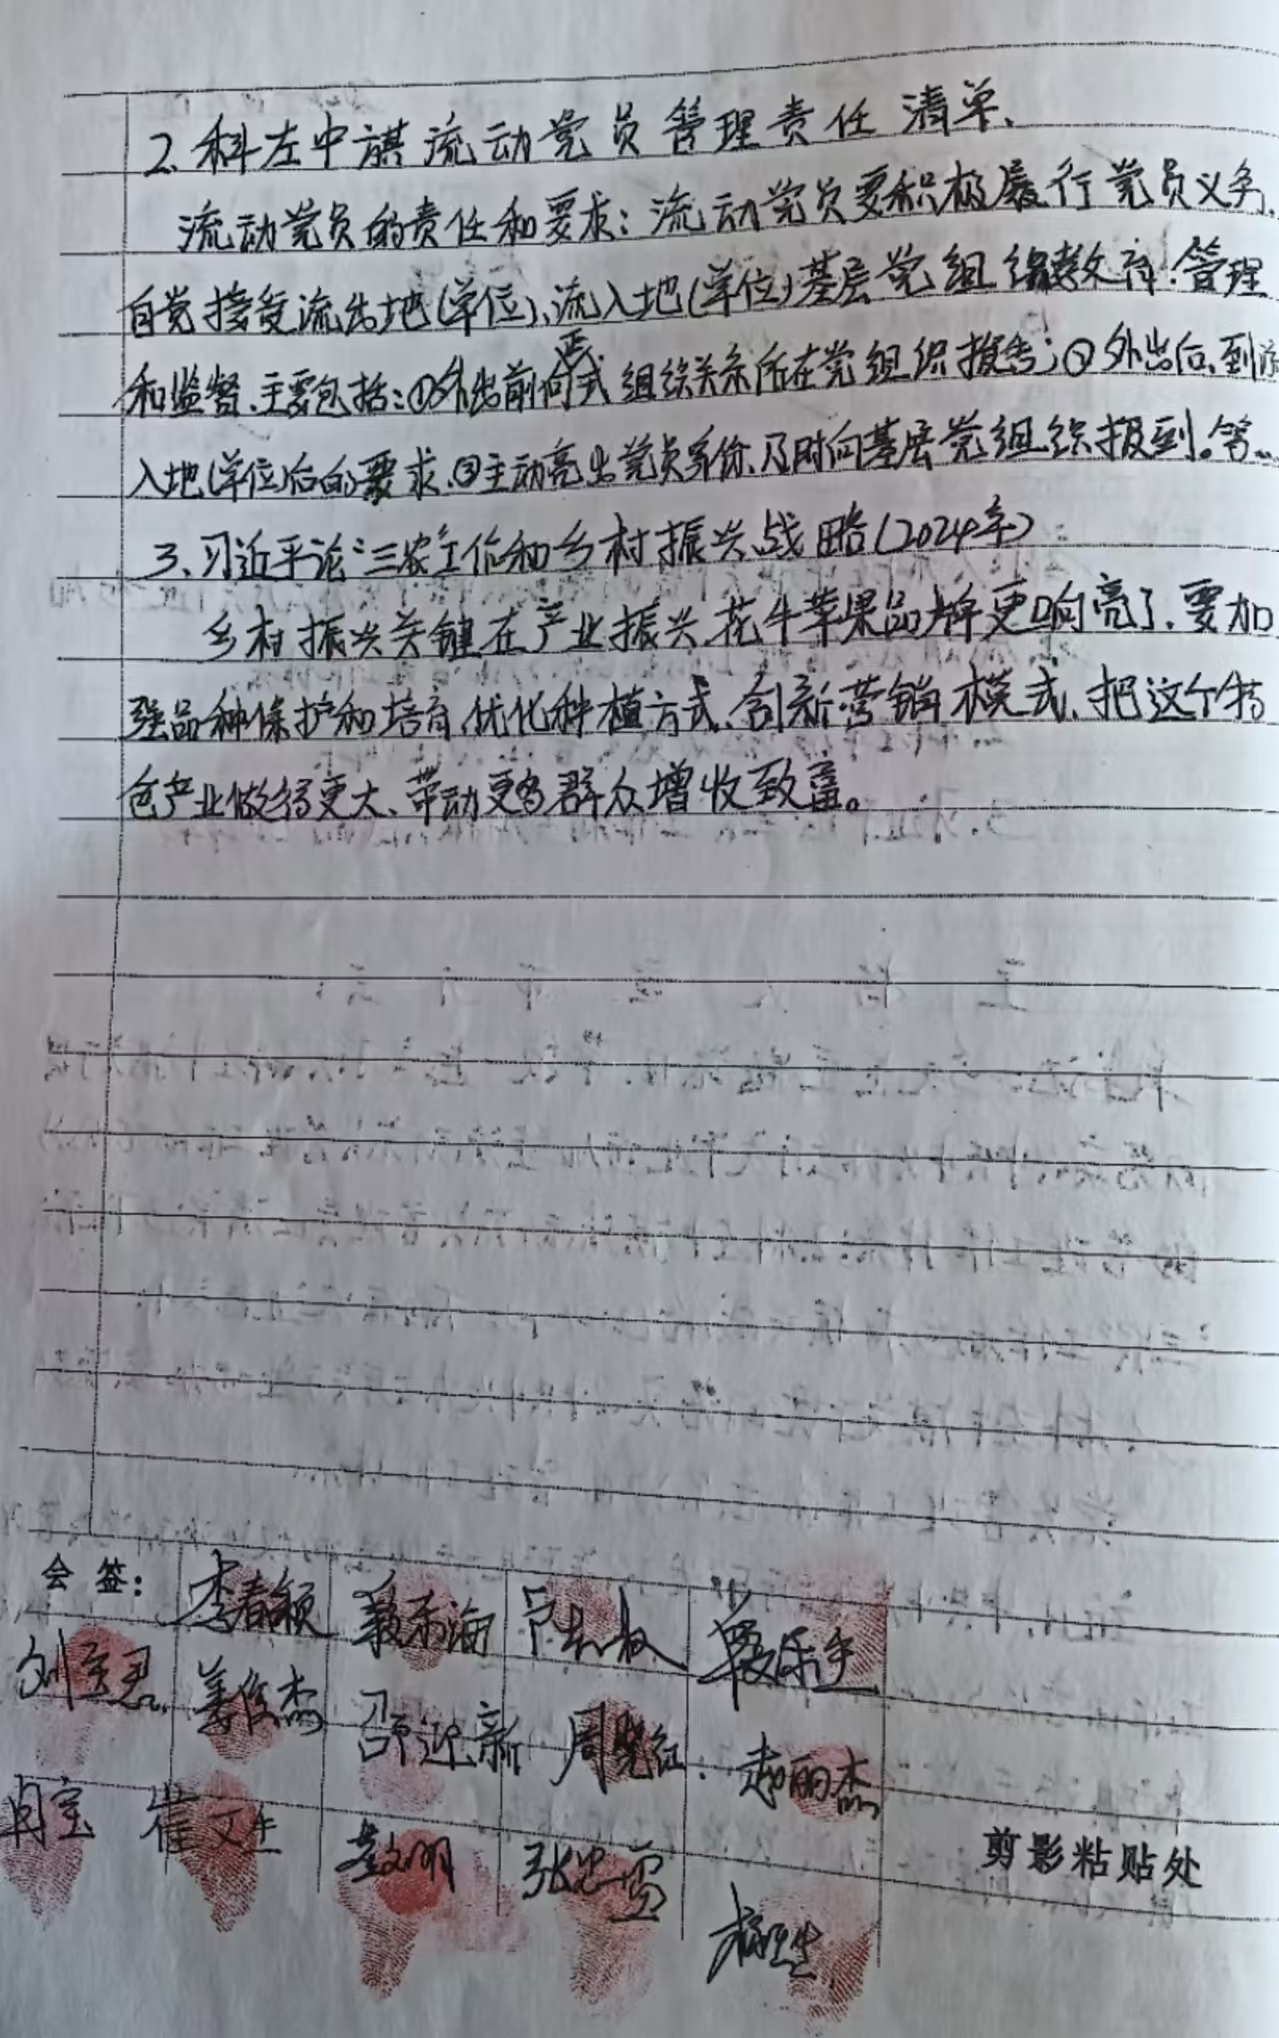 2、科左中旗流动党员管理责任清单、
流动党员的责任和要求：流动党员要积极履行党员义务、
自觉接受流出地(单位)、流入地(单位)基层党组织教育、管理
和监督、主要包括：①外出前向正式组织关系所在党组织报告；②外出后、到流
入地(单位)后的要求、③主动亮出党员身份、及时向基层党组织报到。等…
3、习近平论“三农”工作和乡村振兴战略(2024年)
乡村振兴关键在产业振兴、花牛苹果品牌更响亮了、要加
强品种保护和培育、优化种植方式、创新营销模式、把这个特
色产业做得更大、带动更多群众增收致富。
会签：李春颖
姜俊杰 邵迎新 周晓红 赵丽杰
月宝 崔文生
剪影粘贴处